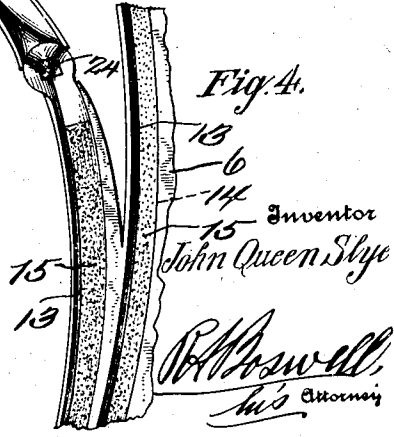 24
Fig. 4.
13
6
14
15
Inventor
John Queen Slye
15
13
R A Boswell,
his Attorney